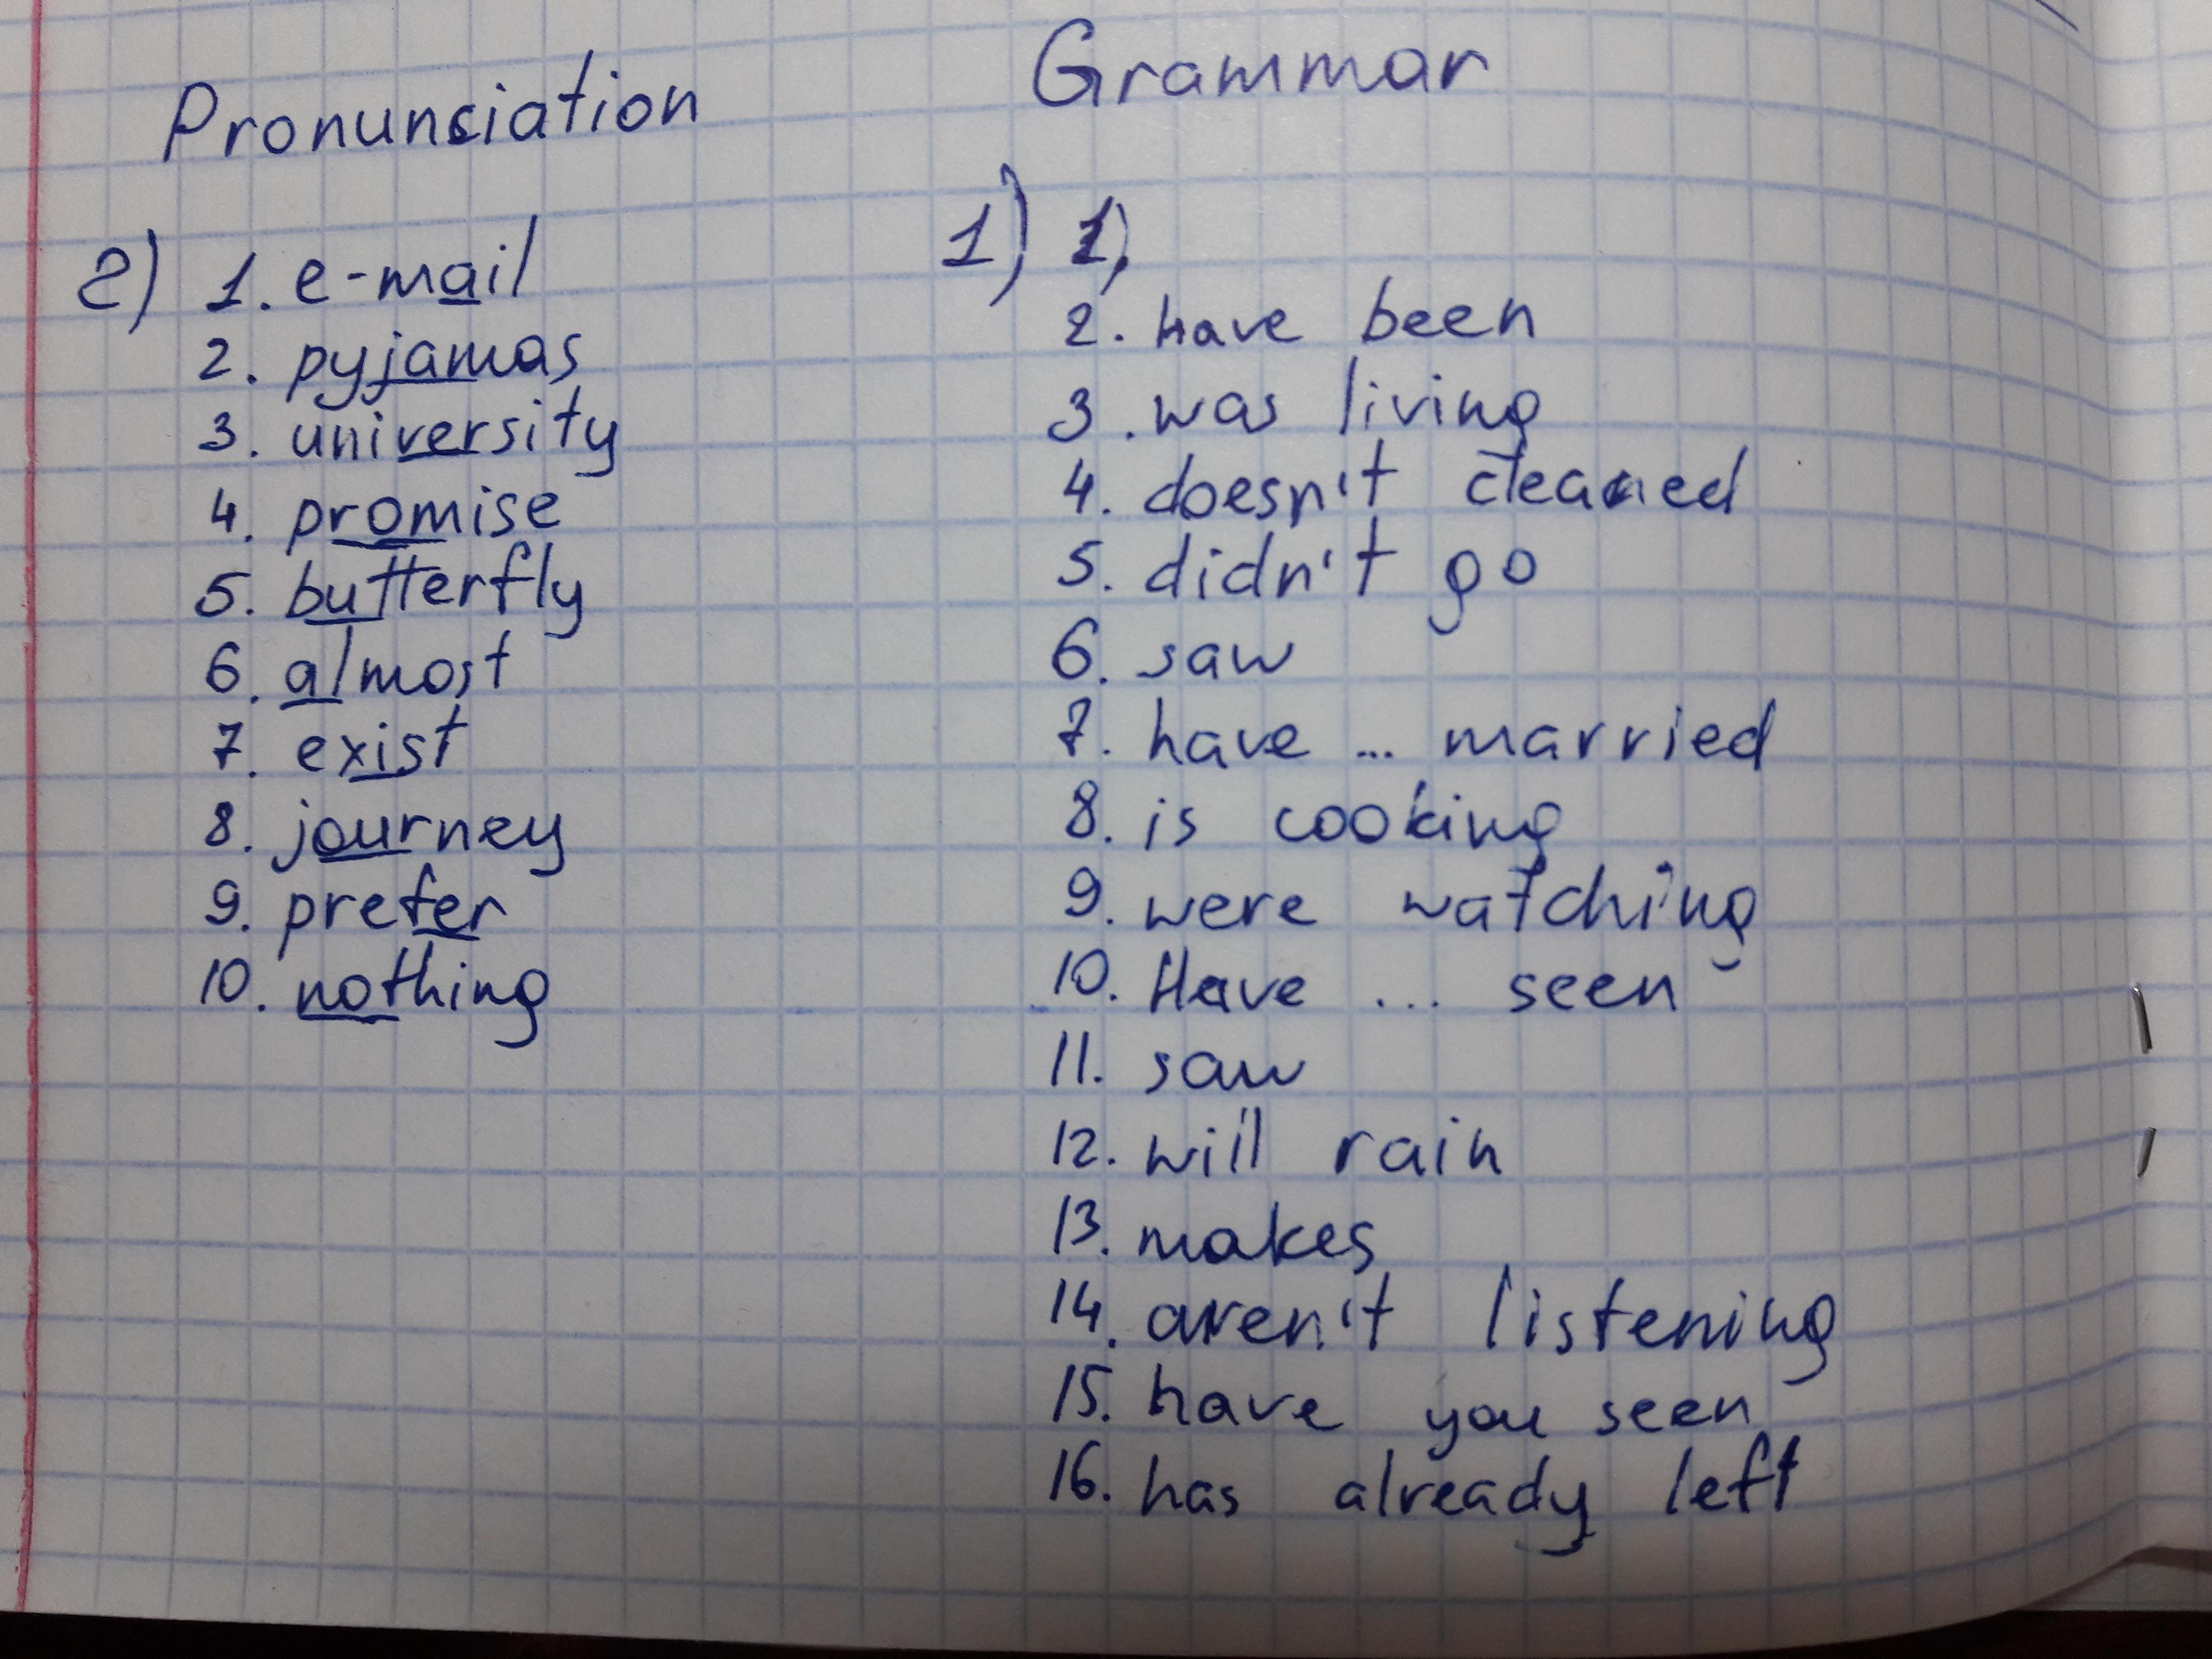 Pronunciation
2) 1. e-mail
2. pyjamas
3. university
4. promise
5. butterfly
6. almost
7. exist
8. journey
9. prefer
10. nothing
Grammar
1) 1,
2. have been
3. was living
4. doesn't cleaned
5. didn't go
6. saw
7. have ... married
8. is cooking
9. were watching
10. Have ... seen
11. saw
12. will rain
13. makes
14. aren't listening
15. have you seen
16. has already left